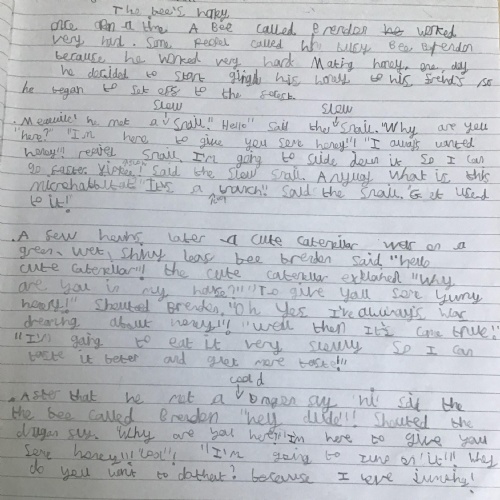 The bee's honey
once upon a time A Bee called Brendon worked
very hard. Some people called him busy Bee Brendon
because he worked very hard Making honey. one day
he decided to start giving his honey to his friends so
he began to set off to the forest.
slow slow
he met a snail. "Hello" said the snail. "Why are you
here?" "I'm here to give you some honey!!" "I always wanted
honey!!! replied snail I'm going to slide down it so I can
go faster. said the slow snail. Anyway what is this
microhabitat "It's a branch". said the snail. Get used
to it!
A few hours later a cute caterpillar was on a
green, wet, shiny leaf bee brendon said, "hello
cute caterpillar"! the cute caterpillar "Why
are you in my house?" "To give you some yummy
honey!" Shouted Brendon. "Oh Yes I've always been
dreaming about honey"!! "Well then It's come true!"
"I'm going to eat it very slowly So I can
taste it better and get more taste!"
cool
After that he met a dragon fly 'hi' said the
the bee called Brendon "hello dude"!! Shouted the
dragon fly. Why are you here? "I'm here to give you
some honey!!! "cool"! "I'm going to on it"!! Why
do you want to do that? because I love